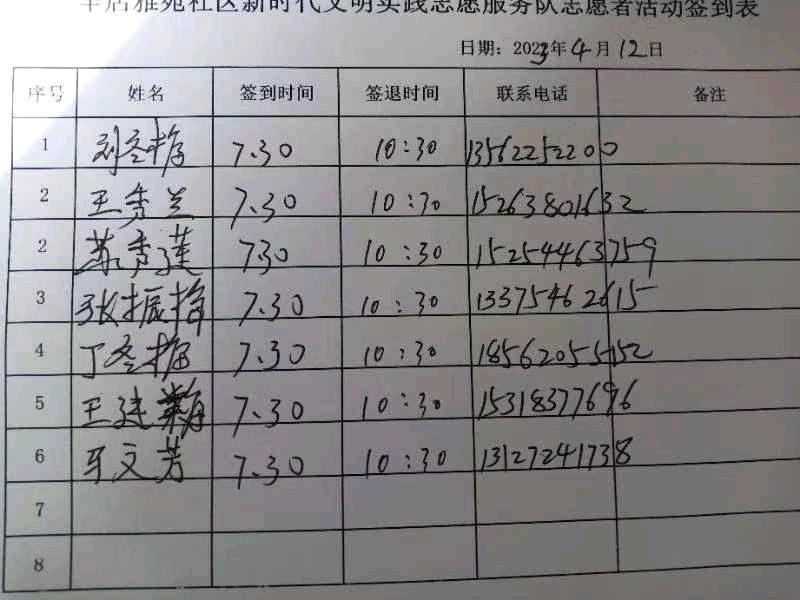 辛店雅苑社区新时代文明实践志愿服务队志愿者活动签到表
日期：2023年4月12日
序号 姓名 签到时间 签退时间 联系电话 备注
1 刘冬梅 7.30 10:30 13562252200
2 王秀兰 7.30 10:30 15263801632
2 苏秀莲 730 10:30 15254463759
3 张振梅 7.30 10:30 13375462615
4 丁冬梅 7.30 10:30 18562055152
5 王建 7.30 10:30 15318377696
6 牙文芳 7.30 10:30 13127241738
7
8